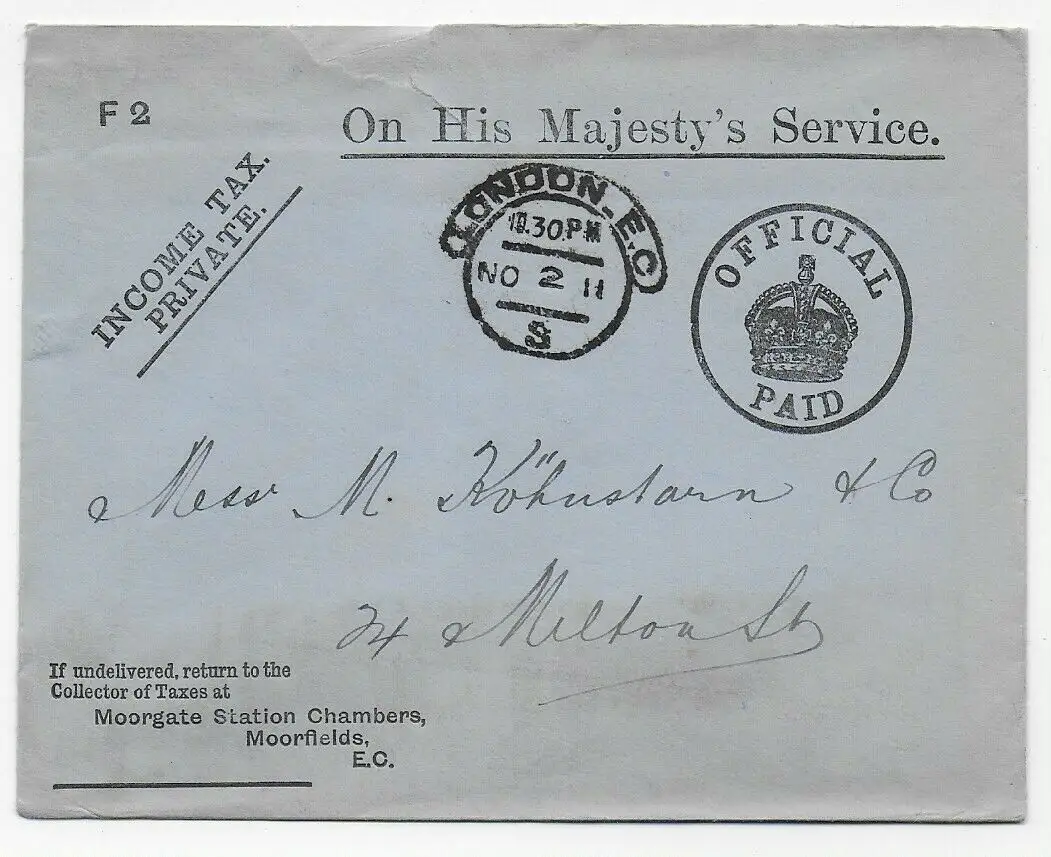 F 2
On His Majesty's Service.
INCOME TAX.
PRIVATE.
LONDON. E.C
10.30.PM
NO 2 11
S
OFFICIAL
PAID
Mess M. Köhnstarn & Co
24 Milton St
If undelivered, return to the
Collector of Taxes at
Moorgate Station Chambers,
Moorfields,
E.C.